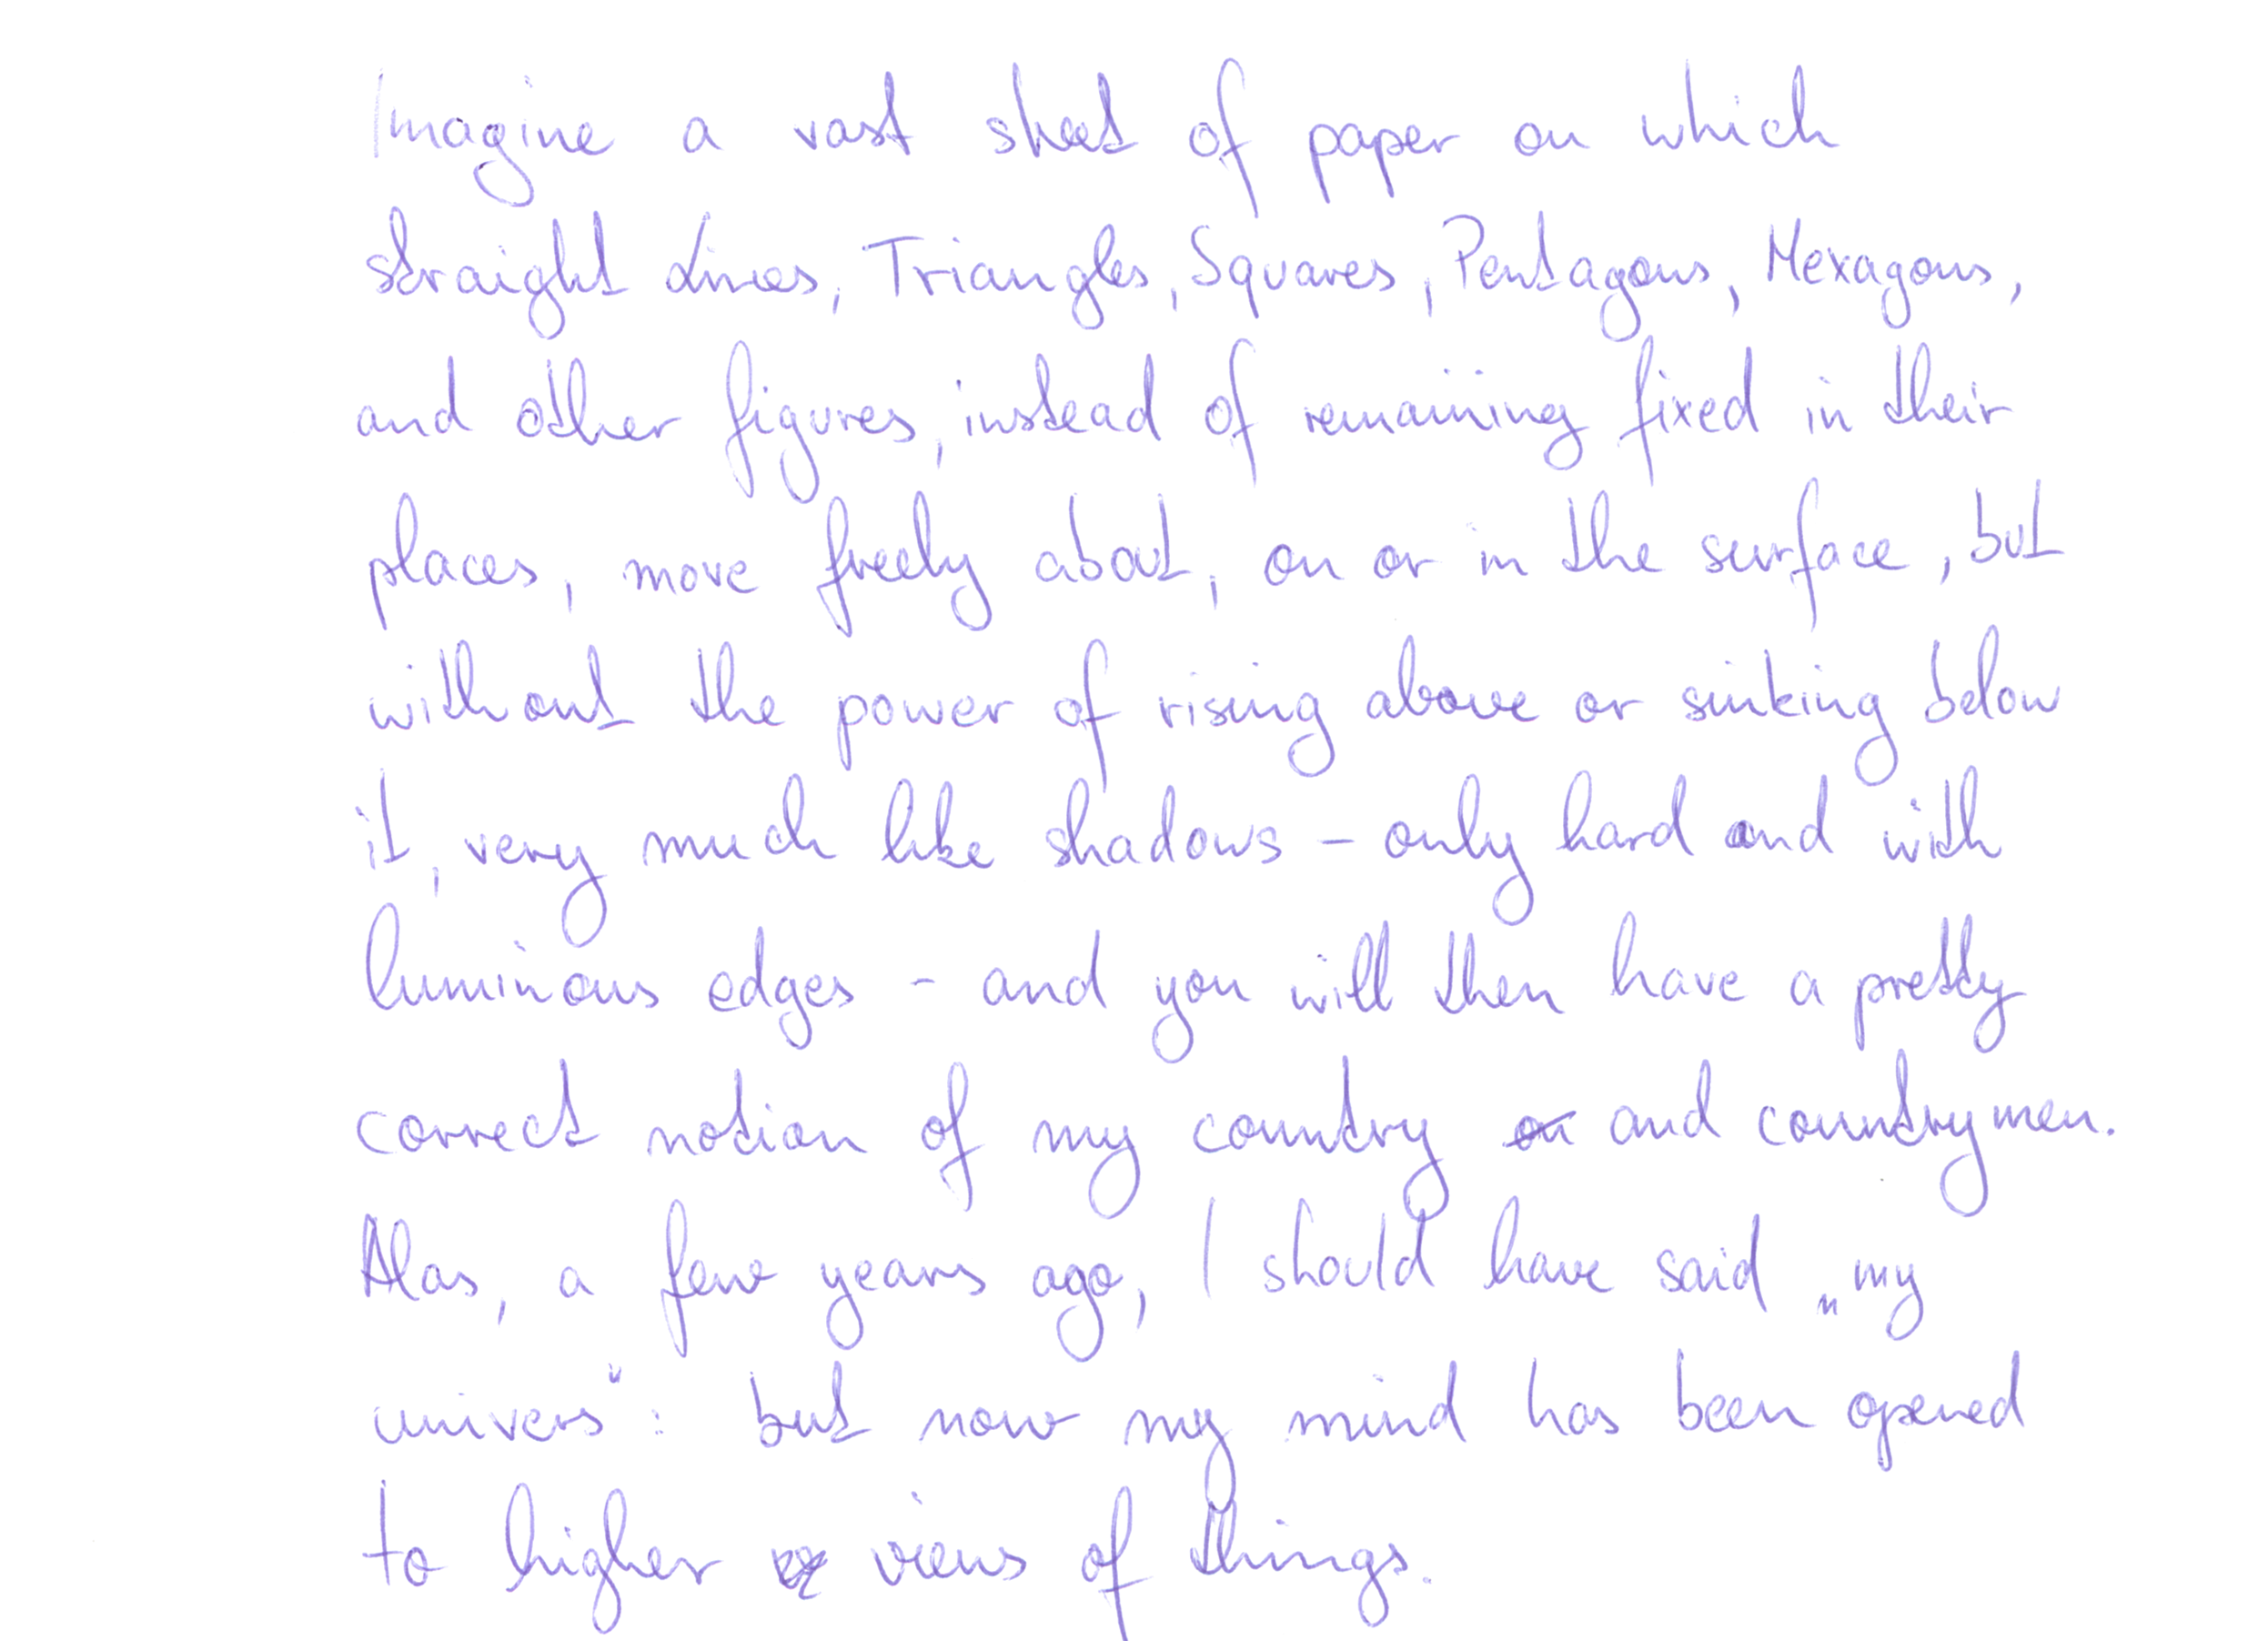 Imagine a vast sheet of paper on which
straight Lines, Triangles, Squares, Pentagons, Hexagons,
and other figures, instead of remaining fixed in their
places, move freely about, on or in the surface, but
without the power of rising above or sinking below
it, very much like shadows - only hard and with
luminous edges - and you will then have a pretty
correct notion of my country and countrymen.
Alas, a few years ago, I should have said „my
univers“: but now my mind has been opened
to higher views of things.